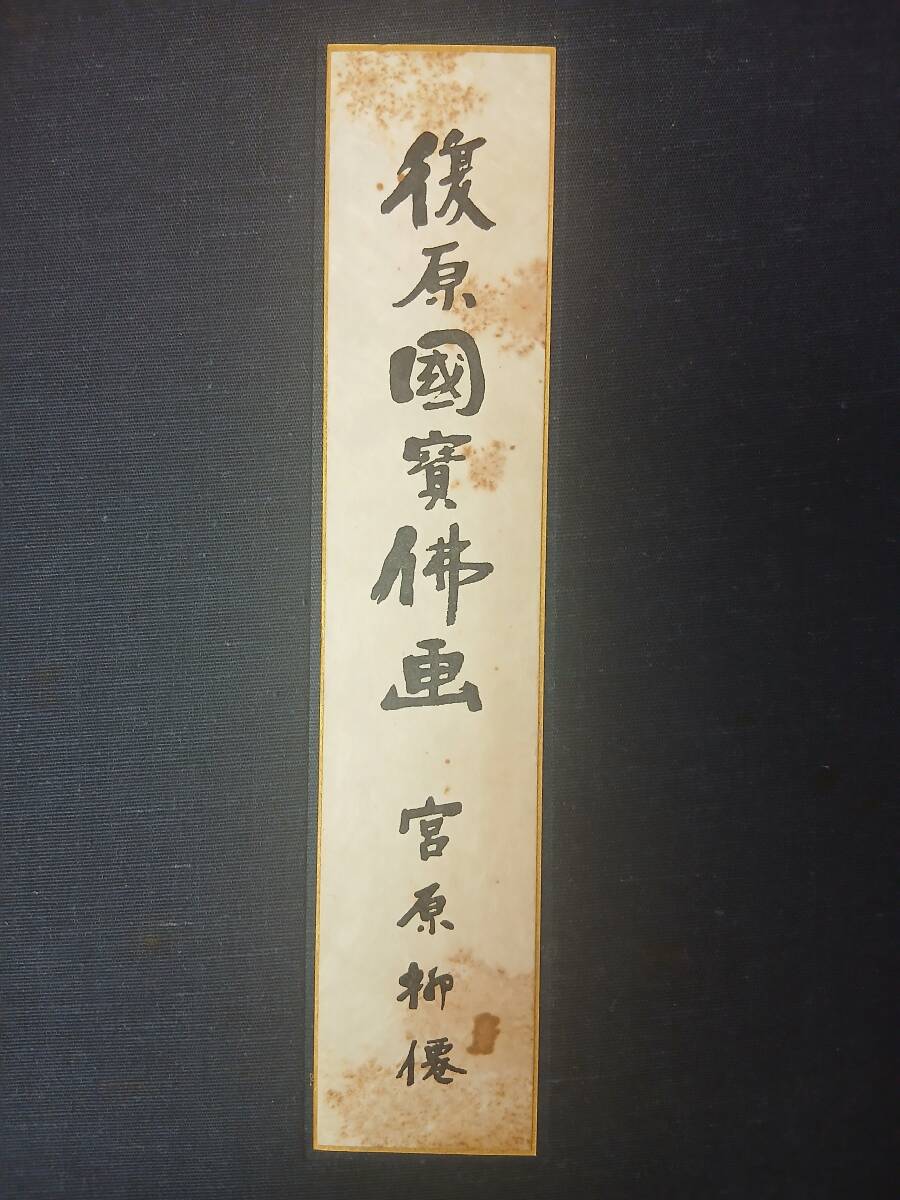 復原國寶佛画 宮原柳僊